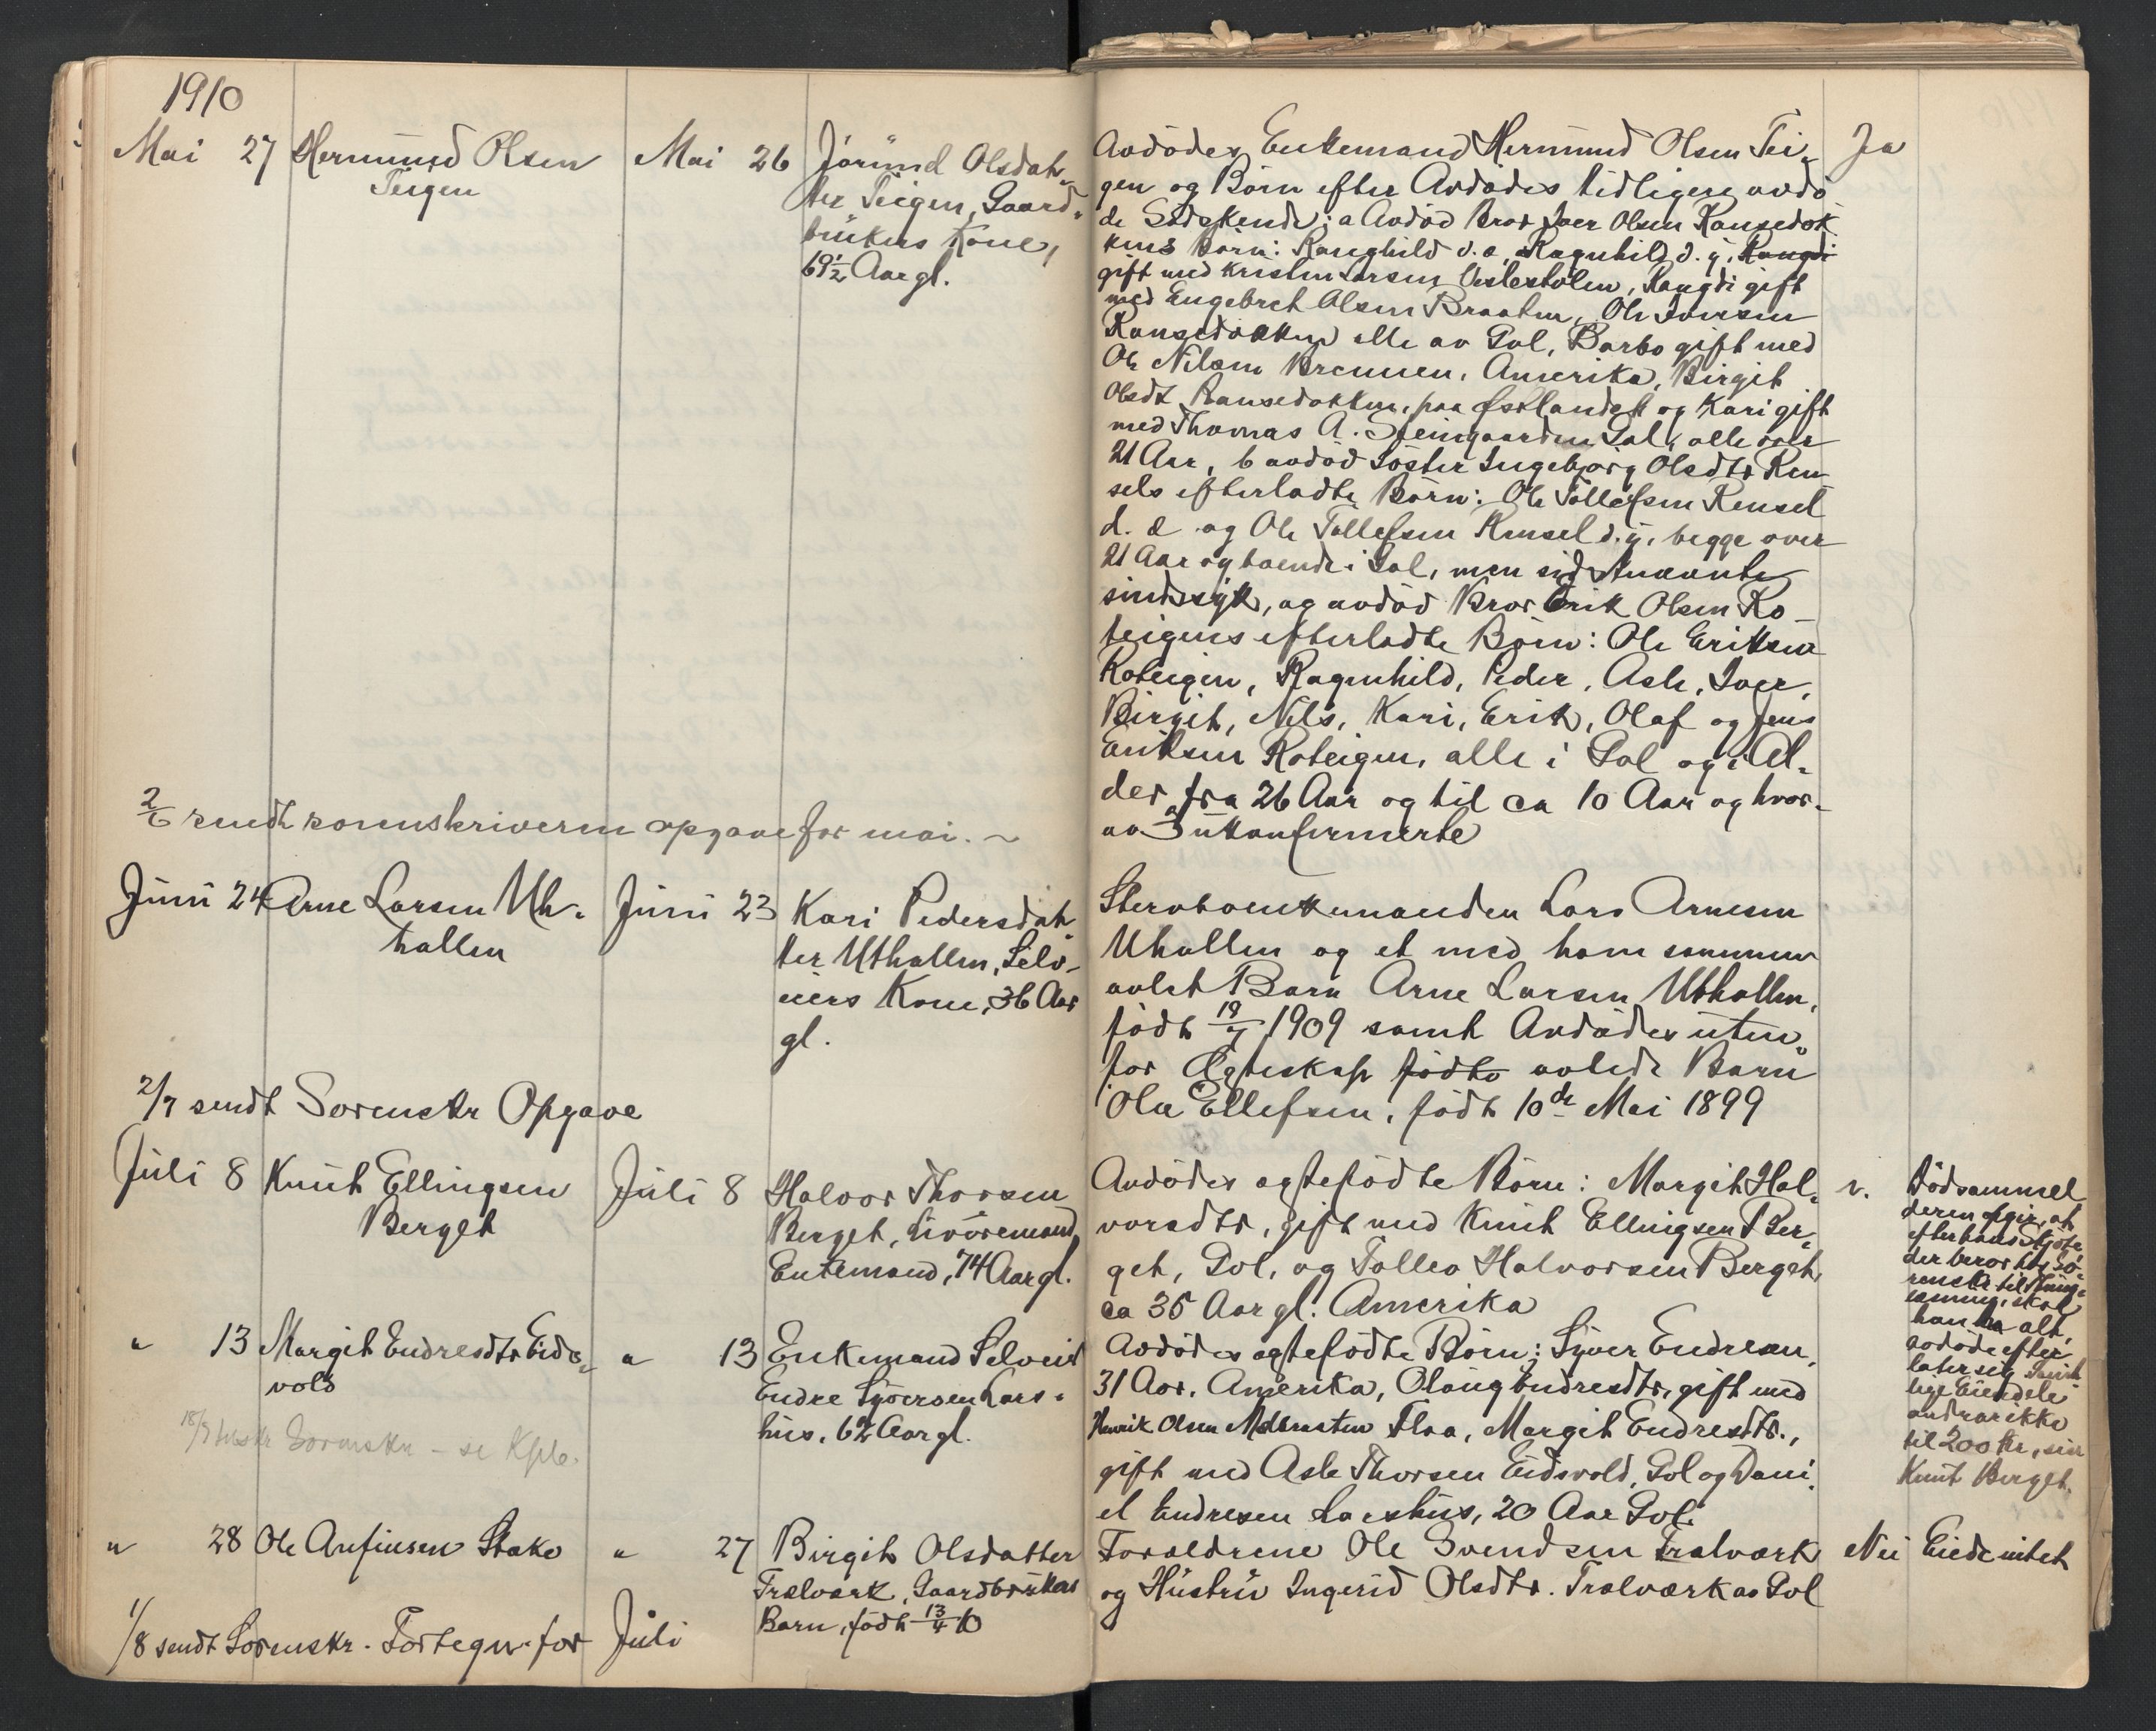 1910
Mai 27 Hermund Olsen
Teigen
Mai 26 Jørund Olsdat-
ter Teigen, Gaard-
brukers Kone,
69 1/2 Aar gl.
Avdødes Enkemand Hermund Olsen Tei-
gen og Børn efter Avdødes tidligere avdø-
de Sødskende: a Avdød Bror Iver Olsen Ransedok-
kens Børn: Ranghild d. æ. Ragnhild d. y. Rangdi
gift med Kristen Larsen Veslestølen, Rangdi gift
med Engebret Olsen Braaten, Ole Iversen
Ransedokken alle av Gol, Barbo gift med
Ole Nilsen Brennen, Amerika, Birgit
Olsdt. Ransedokken, paa Østlandet og Kari gift
med Thomas A. Steingaarden Gol, alle over
21 Aar, b avdød Søster Ingebjørg Olsdtr Ren-
sels efterladte Børn: Ole Tollefsen Rensel
d. æ og Ole Tollefsen Rensel d. y. begge over
21 Aar og boende i Gol, men sidstnævnte
sindssyk, og avdød Bror Erik Olsen Ro-
teigens efterladte Børn: Ole Eriksen
Roteigen, Ragnhild, Peder, Asle, Iver,
Birgit, Nils, Kari, Erik, Olaf og Jens
Eriksen Roteigen, alle i Gol og i Al-
der fra 26 Aar og til ca 10 Aar og hvor-
av 3 ukonfirmerte
Ja
2/6 sendt sorenskriveren opgave for mai. ~
Juni 24 Arne Larsen Ut-
hallen
Juni 23 Kari Pedersdat-
ter Uthallen, Selv-
eiers Kone, 36 Aar
gl.
Stervboenkemanden Lars Arnesen
Uthallen og et med ham sammen
avlet Barn Arne Larsen Uthallen,
født 19/7 1909 samt Avdødes uten-
for Ægteskap fødte avlede Barn
Ole Ellefsen, født 10de Mai 1899
2/7 sendt Sorenskr Opgave
Juli 8 Knut Ellingsen
Berget
Juli 8 Halvor Thorsen
Berget, Livøremand,
Enkemand, 74 Aar gl.
Avdødes egtefødte Børn: Margit Hal-
vorsdtr, gift med Knut Ellingsen Ber-
get, Gol, og Tollev Halvorsen Berget,
ca 35 Aar gl. Amerika
Dødsanmel
deren opgir, at
efter hans Skjøte
der beror hos So-
renskr til Thing-
læsning, skal
han ha alt,
avdøde efter
later sig
lige Eiendele
andrar ikke
til 200 Kr, sier
Knut Berget.
" 13 Margit Endresdtr Eids-
vold
" 13 Enkemand Selveier
Endre Syversen Lars-
hus, 62 Aar gl.
Avdødes egtefødte Børn: Syver Endresen,
31 Aar, Amerika, Olaug Endresdtr, gift med
Henrik Olsen Flaa, Margit Endresdtr.,
gift med Asle Thorsen Eidsvold, Gol og Dani-
el Endresen Larshus, 20 Aar Gol.
18/7 Sorenskr - se
" 28 Ole Anfinsen Stake
" 27 Birgit Olsdatter
Trælværk, Gaardbrukers
Barn, født 13/4 10
Forældrene Ole Svendsen Trælværk
og Hustru Ingerid Olsdtr. Trælværk av Gol
Nei Eiede intet
1/8 sendt Sorenskr. Fortegn. for Juli